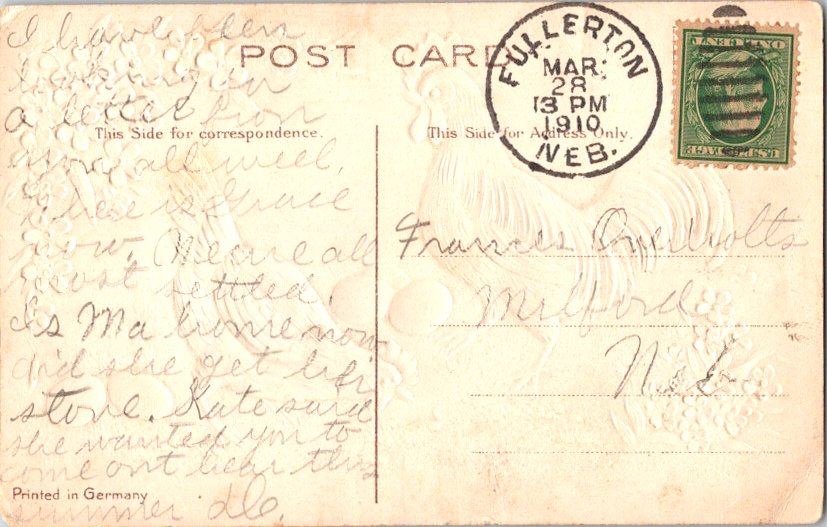 POST CARD
This Side for correspondence.
This Side for Address Only.
FULLERTON
MAR.
28
3 PM
1910
NEB.
ONE CENT
U.S. POSTAGE
I have been
looking for
a letter from
you, all week.
Where is Grace
now. We are all
most settled.
Is Ma home now
did she get her
stove. Kate said
she wanted you to
come out hear this
summer
Frances Overholts
Milford
Neb
Printed in Germany